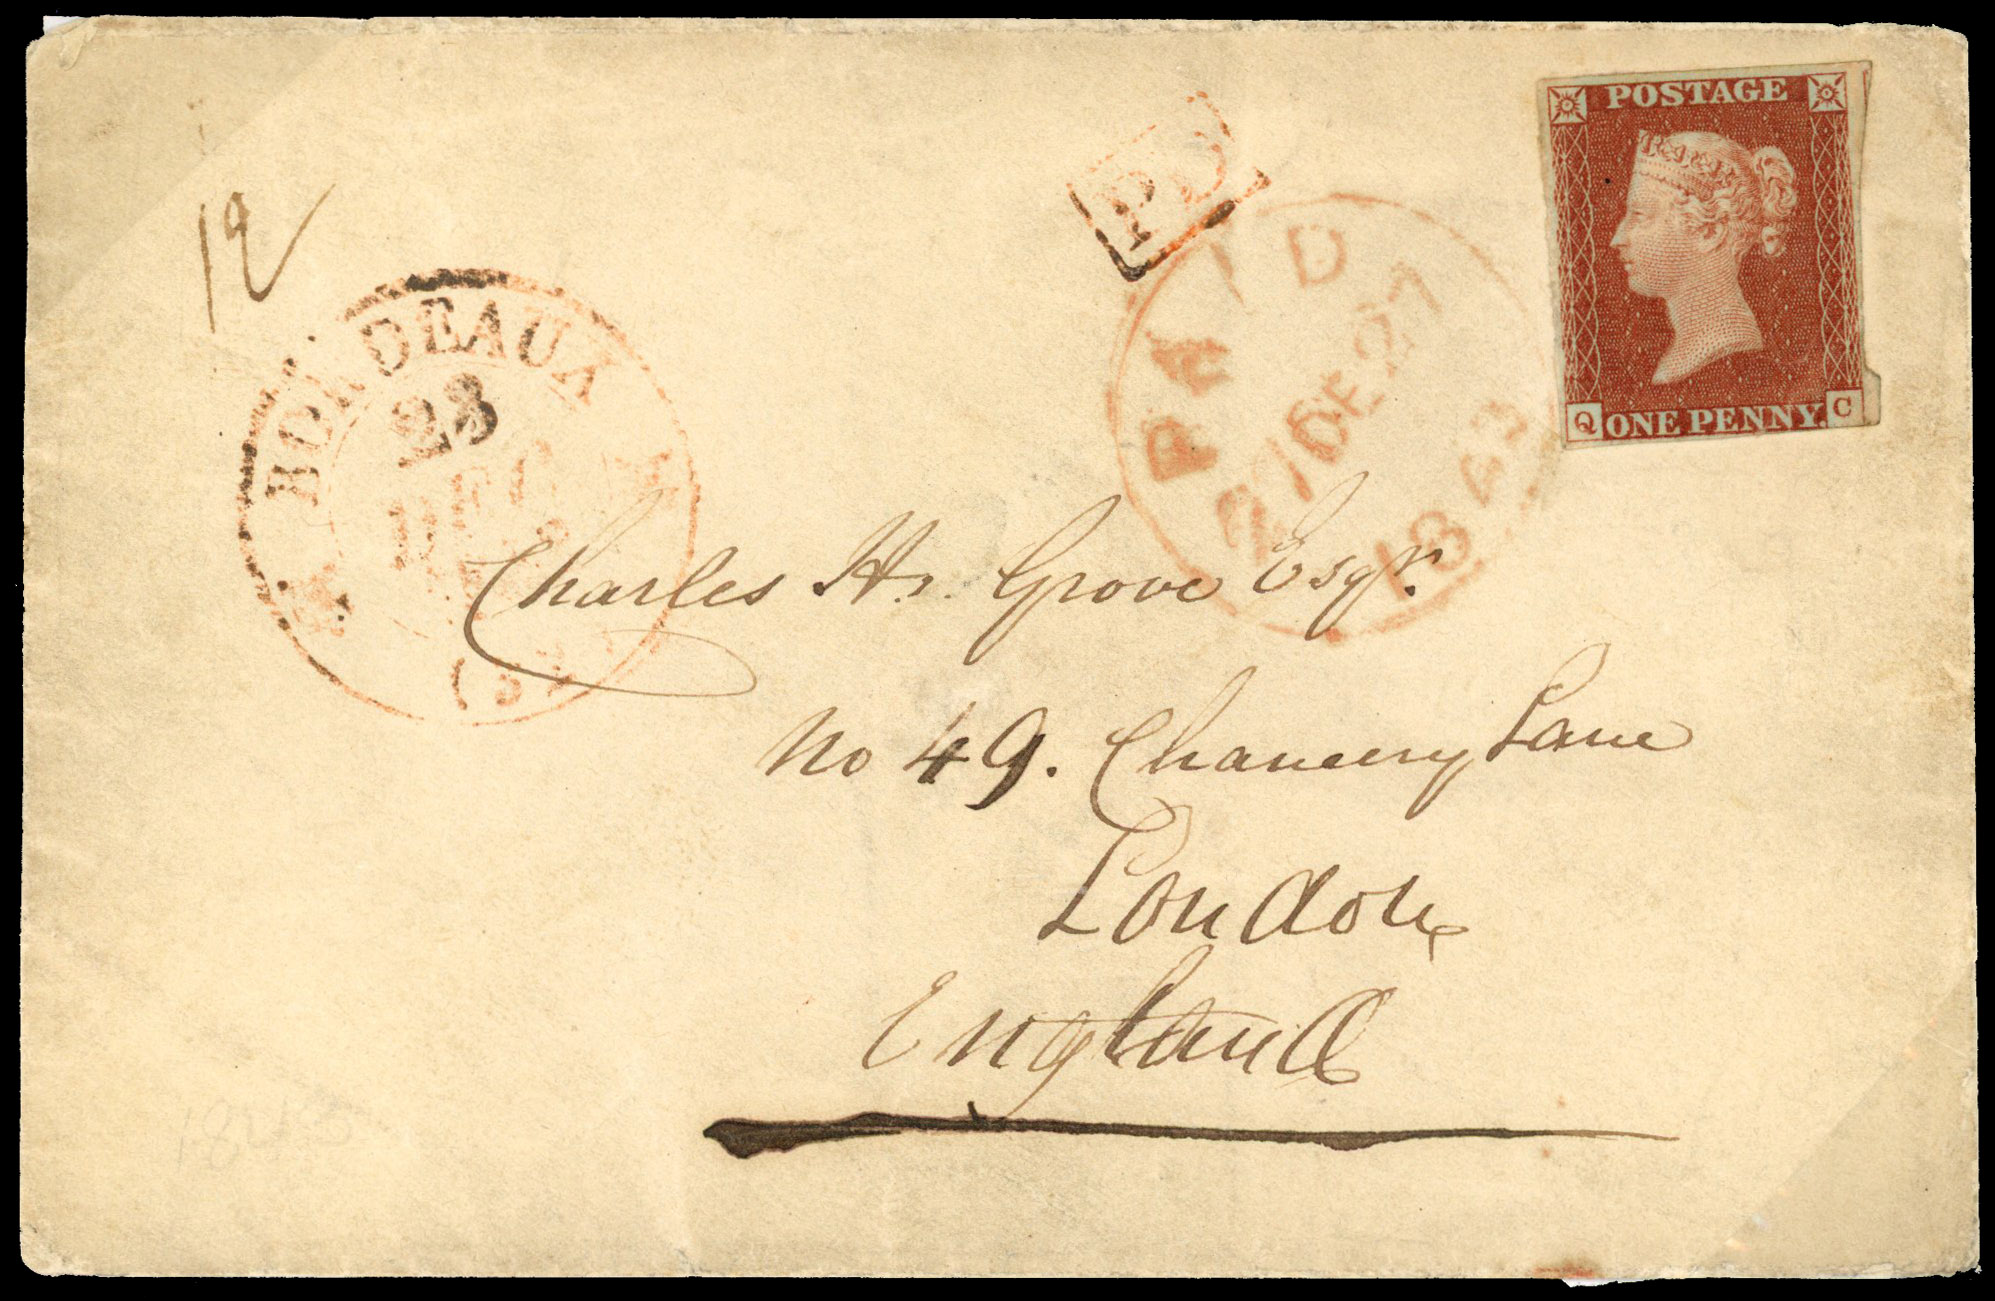 POSTAGE
PD
PAID
27 DE 27
1843
Q ONE PENNY. C
12
BORDEAUX
23
DEC
(32)
Charles H. Grove Esqr.
No 49. Chancery Lane
London
England
1843